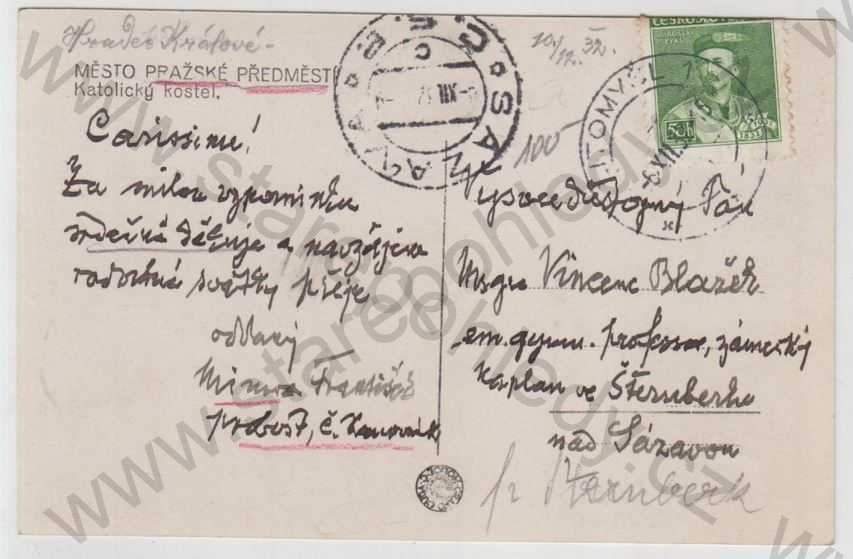 Hradec Králové -
MĚSTO PRAŽSKÉ PŘEDMĚSTÍ
Katolický kostel.
Carissime!
Za milou vzpomínku
srdečně děkuje a navzájem
radostné svátky přeje
oddaný
František
probost, č. kanovník
SÁZAVA
10/12. 32.
100
ČESKOSLOV
50h
LITOMYŠL 1
Vysocedůstojný Pán
Msgre Vincenc Blažek
em. gymn. professor, zámecký
kaplan ve Šternberku
nad Sázavou
p Šternberk
www.staropohledy.cz